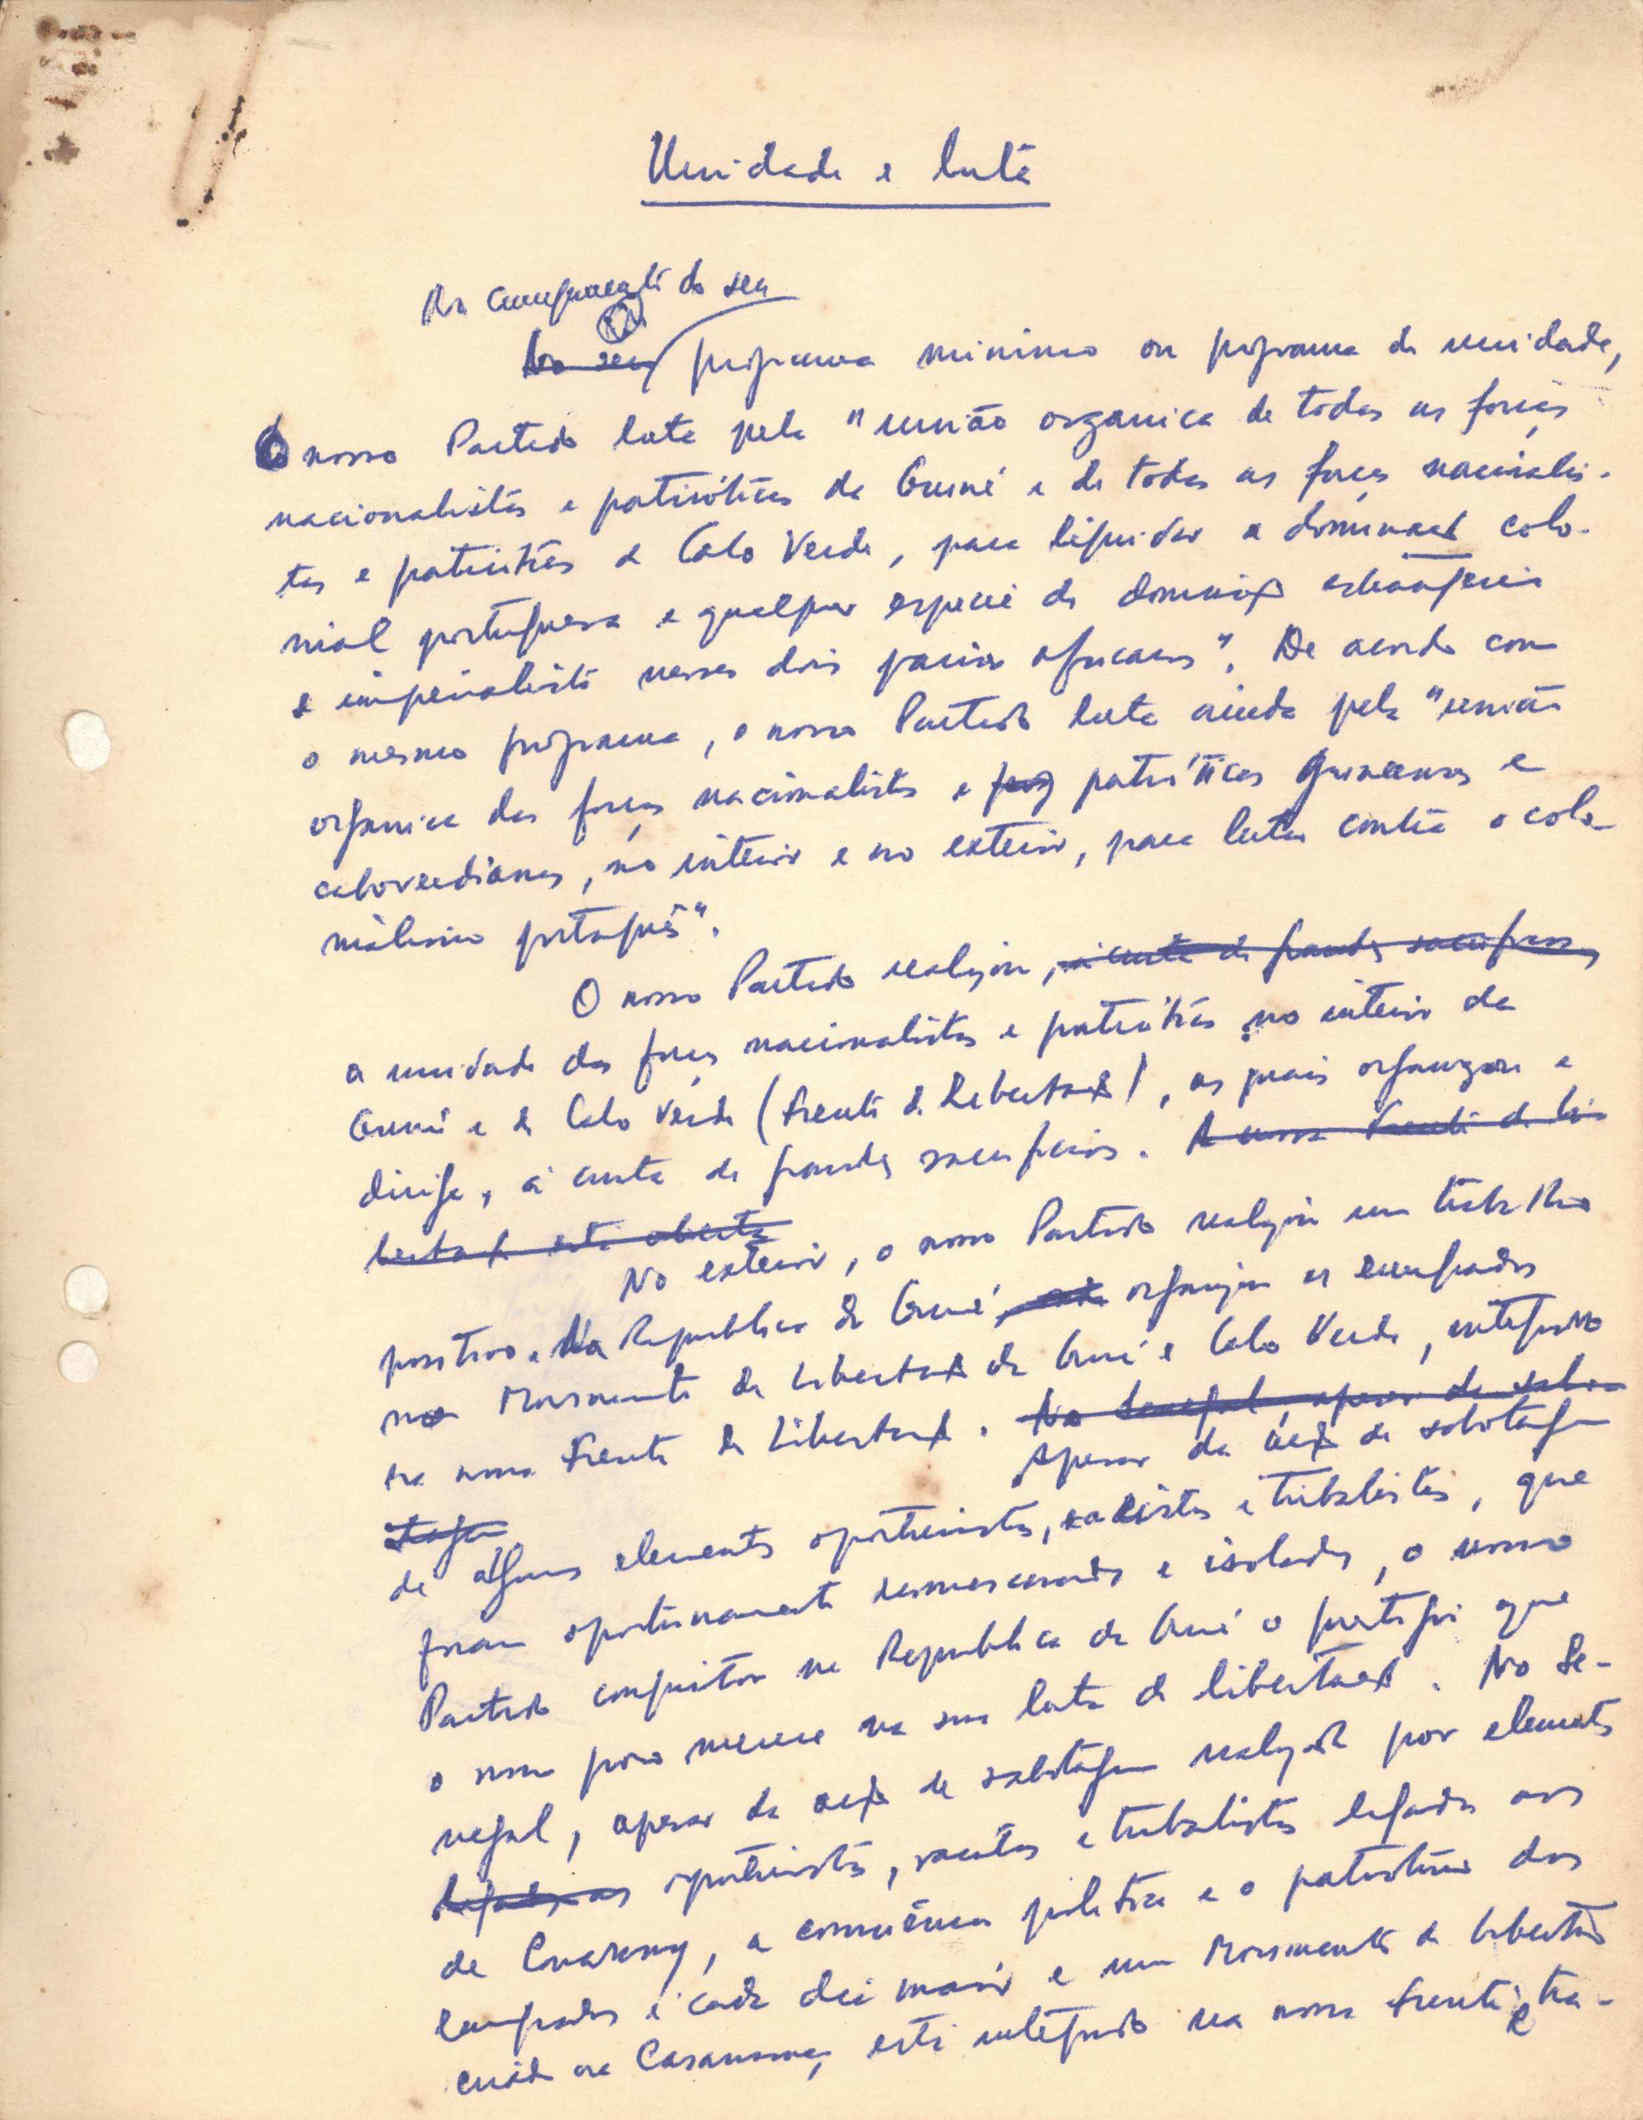 Unidade e luta
Na do seu
No seu programa minimo ou programa de unidade,
o nosso Partido luta pela "união organica de todas as forças
nacionalistas e patrióticas da Guiné e de todas as forças nacionalis-
tas e patrióticas de Cabo Verde, para liquidar a dominação colo-
nial portuguesa e qualquer espécie de dominação estrangeira
e imperialista nesses dois paises africanos". De acordo com
o mesmo programa, o nosso Partido luta ainda pela "união
organica das forças nacionalistas e patrióticas guineenses e
caboverdianas, no interior e no exterior, para lutar contra o colo-
nialismo português".
O nosso Partido realizou, à custa de grandes sacrificios
a unidade das forças nacionalistas e patrióticas no interior da
Guiné e de Cabo Verde (Frente de Libertação), as quais organizou e
dirige, à custa de grandes sacrificios. A nossa Frente de Li-
bertação está aberta
No exterior, o nosso Partido realizou um trabalho
positivo. Na Republica da Guiné, organizou os emigrados
no Movimento de Libertação da Guiné e Cabo Verde, integrado
na nossa Frente de Libertação. No Senegal, apesar da sabo-
tagem
Apesar da acção de sabotagem
de alguns elementos oportunistas, racistas e tribalistas, que
foram oportunamente desmascarados e isolados, o nosso
Partido conquistou na Republica da Guiné o prestigio que
o nosso povo merece na sua luta de libertação. No Se-
negal, apesar da acção de sabotagem realizada por elementos
ligados aos oportunistas, racistas e tribalistas ligados aos
de Conakry, a consciência politica e o patriotismo dos
emigrados é cada dia maior e um Movimento de Libertação
criado na Casamansa, está integrado na nossa Frente e tra-